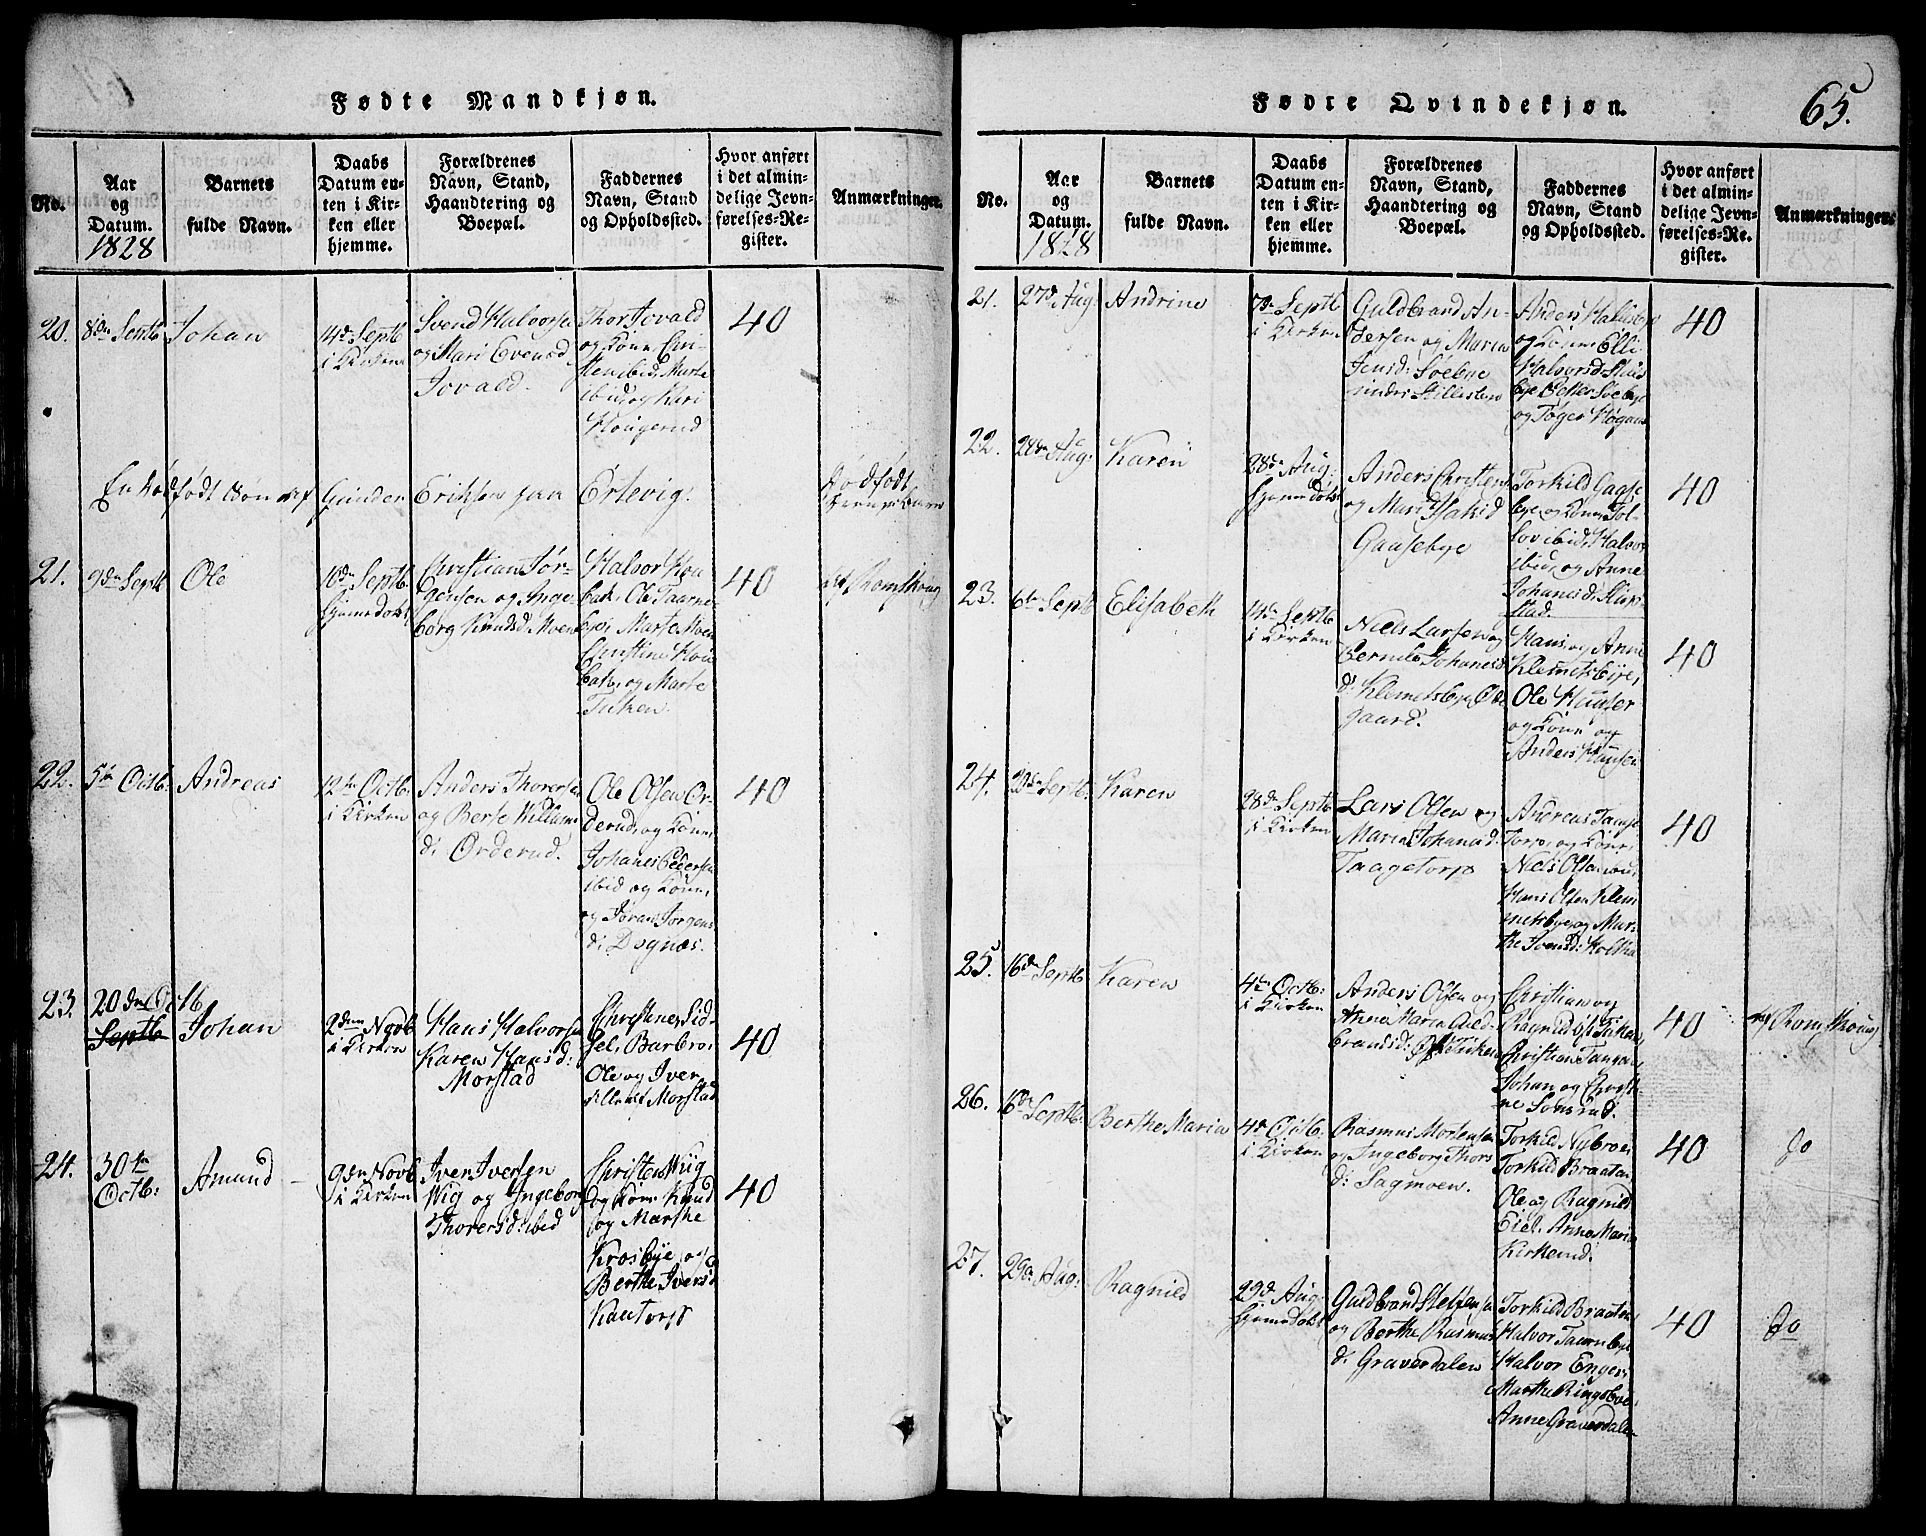 Fødte Mandkjøn.
No.
Aar
og
Datum.
1828
Barnets
fulde Navn.
Daabs
Datum en-
ten i Kir-
ken eller
hjemme.
Forældrenes
Navn, Stand,
Haandtering og
Boepæl.
Faddernes
Navn, Stand
og Opholdssted.
Hvor anført
i det almin-
delige Jevn-
førelses-Re-
gister.
Anmærkninger.
20.
8de Septb
Johan
14de Septb
i Kirken
Svend Halvorsen
og Mari Evensd
Jovald.
Thor Jovald
og Kone
ibid, Marte
ibid og Kari
Hougerud
40
En død født Søn af Gunder Eriksen paa Ertevig.
Dødfødt
21.
9de Septb
Ole
10de Septb.
hjemedøbt
Christian Jør-
gensen og Inge-
borg Knudsd Moen
Halvor Kou
bak, Ole Taarne-
bye, Marte Moen
Christine Kou
bak, og Marte
Tuken.
40
af Romskoug
22.
5te Octb:
Andreas
12te Octb:
i Kirken
Anders Thoresen
og Berte Willums
d: Orderud.
Ole Olsen Or-
derud, og Kone,
Johanes Pedersen
ibid og Kone,
og Joran Jørgens
d: Dognæs.
40
23.
20de Octb
Septb
Johan
2den Novb
i Kirken
Hans Halvorsen
Karen Hansd:
Morstad
Christine Sid-
sel, Barbro,
Ole og Iver
alle af Morstad
40
24.
30te
Octb:
Amund
9de Novb
i Kirken
Iver Iversen
Wig og Ingeborg
Thoresd: ibid
Christen Wiig
og Kone Knud
og Marthe
Krosbye, og
Berthe Iversd
Kaatorp
40
Fødte Qvindekjøn.
65.
No.
Aar
og
Datum.
1828
Barnets
fulde Navn.
Daabs
Datum en-
ten i Kir-
ken eller
hjemme.
Forældrenes
Navn, Stand,
Haandtering og
Boepæl.
Faddernes
Navn, Stand
og Opholdssted.
Hvor anført
i det almin-
delige Jevn-
førelses-Re-
gister.
Anmærkninger.
21.
27de Aug:
Andrine
7de Septb
i Kirken
Guldbrand An-
dersen og Maren
Jensd: Søebye
under Stillesten
Anders Hallesbye
og Kone Elli
Halvorsd
bye Petter Søebye
og
40
22.
28de Aug:
Karen
28de Aug:
hjemedøbt
Anders Christens
og Mari Isaksd
Gaasebye
Torkild Gaase
bye, og Kone, Tol-
lov ibid, Halvor
ibid, og Anne
Johanesd: Slup-
stad.
40
23.
6te Septb
Elisabeth
14de Septb
i Kirken
Niels Larsen og
Bernile Johanes
d: Klemetsbye Øde
gaard.
Hans og Anne
Klemetsbye,
Ole Hansen
og Kone og
Anders Hansen
40
24.
20de Septb:
Karen
28de Septb
i Kirken
Lars Olsen og
Maria Johanesd:
Taagetorp
Andreas Taage
torp, og Kone,
Niels Olsen
Hans Olsen Klem
metsbye, og Mar-
the Svensd: Holth
40
25.
16de Septb:
Karen
4de Octb:
i Kirken
Anders Olsen og
Anne Maria Guld-
brandsd: Tuken
Christian og
Ragnild Tuken,
Christian Tangen,
Johan og Christi-
ne Sonsrud.
40
af Romskoug
26.
16de Septb:
Berthe Maria
4de Octb:
i Kirken
Rasmus Mortensen
og Ingeborg Thors
d: Sagmoen.
Torkild Nybroen
Torkild Braaten
Ole og Ragnild
Eid, Anne Maria
Kirkerud.
40
do
27.
29de Aug:
Ragnild
29de Aug:
hjemedøbt
Guldbrand Steffens
og Berthe Rasmus
d: Graverdalen
Torkild Braaten,
Halvor Taarnbye
Halvor Enger,
Marthe Ringsbye,
Anne Graverdalen
40
do